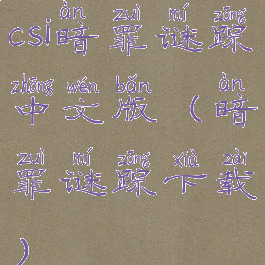 àn zuì mí zōng
csi暗罪谜踪
zhōng wén bǎn àn
中文版(暗
zuì mí zōng xià zài
罪谜踪下载
)